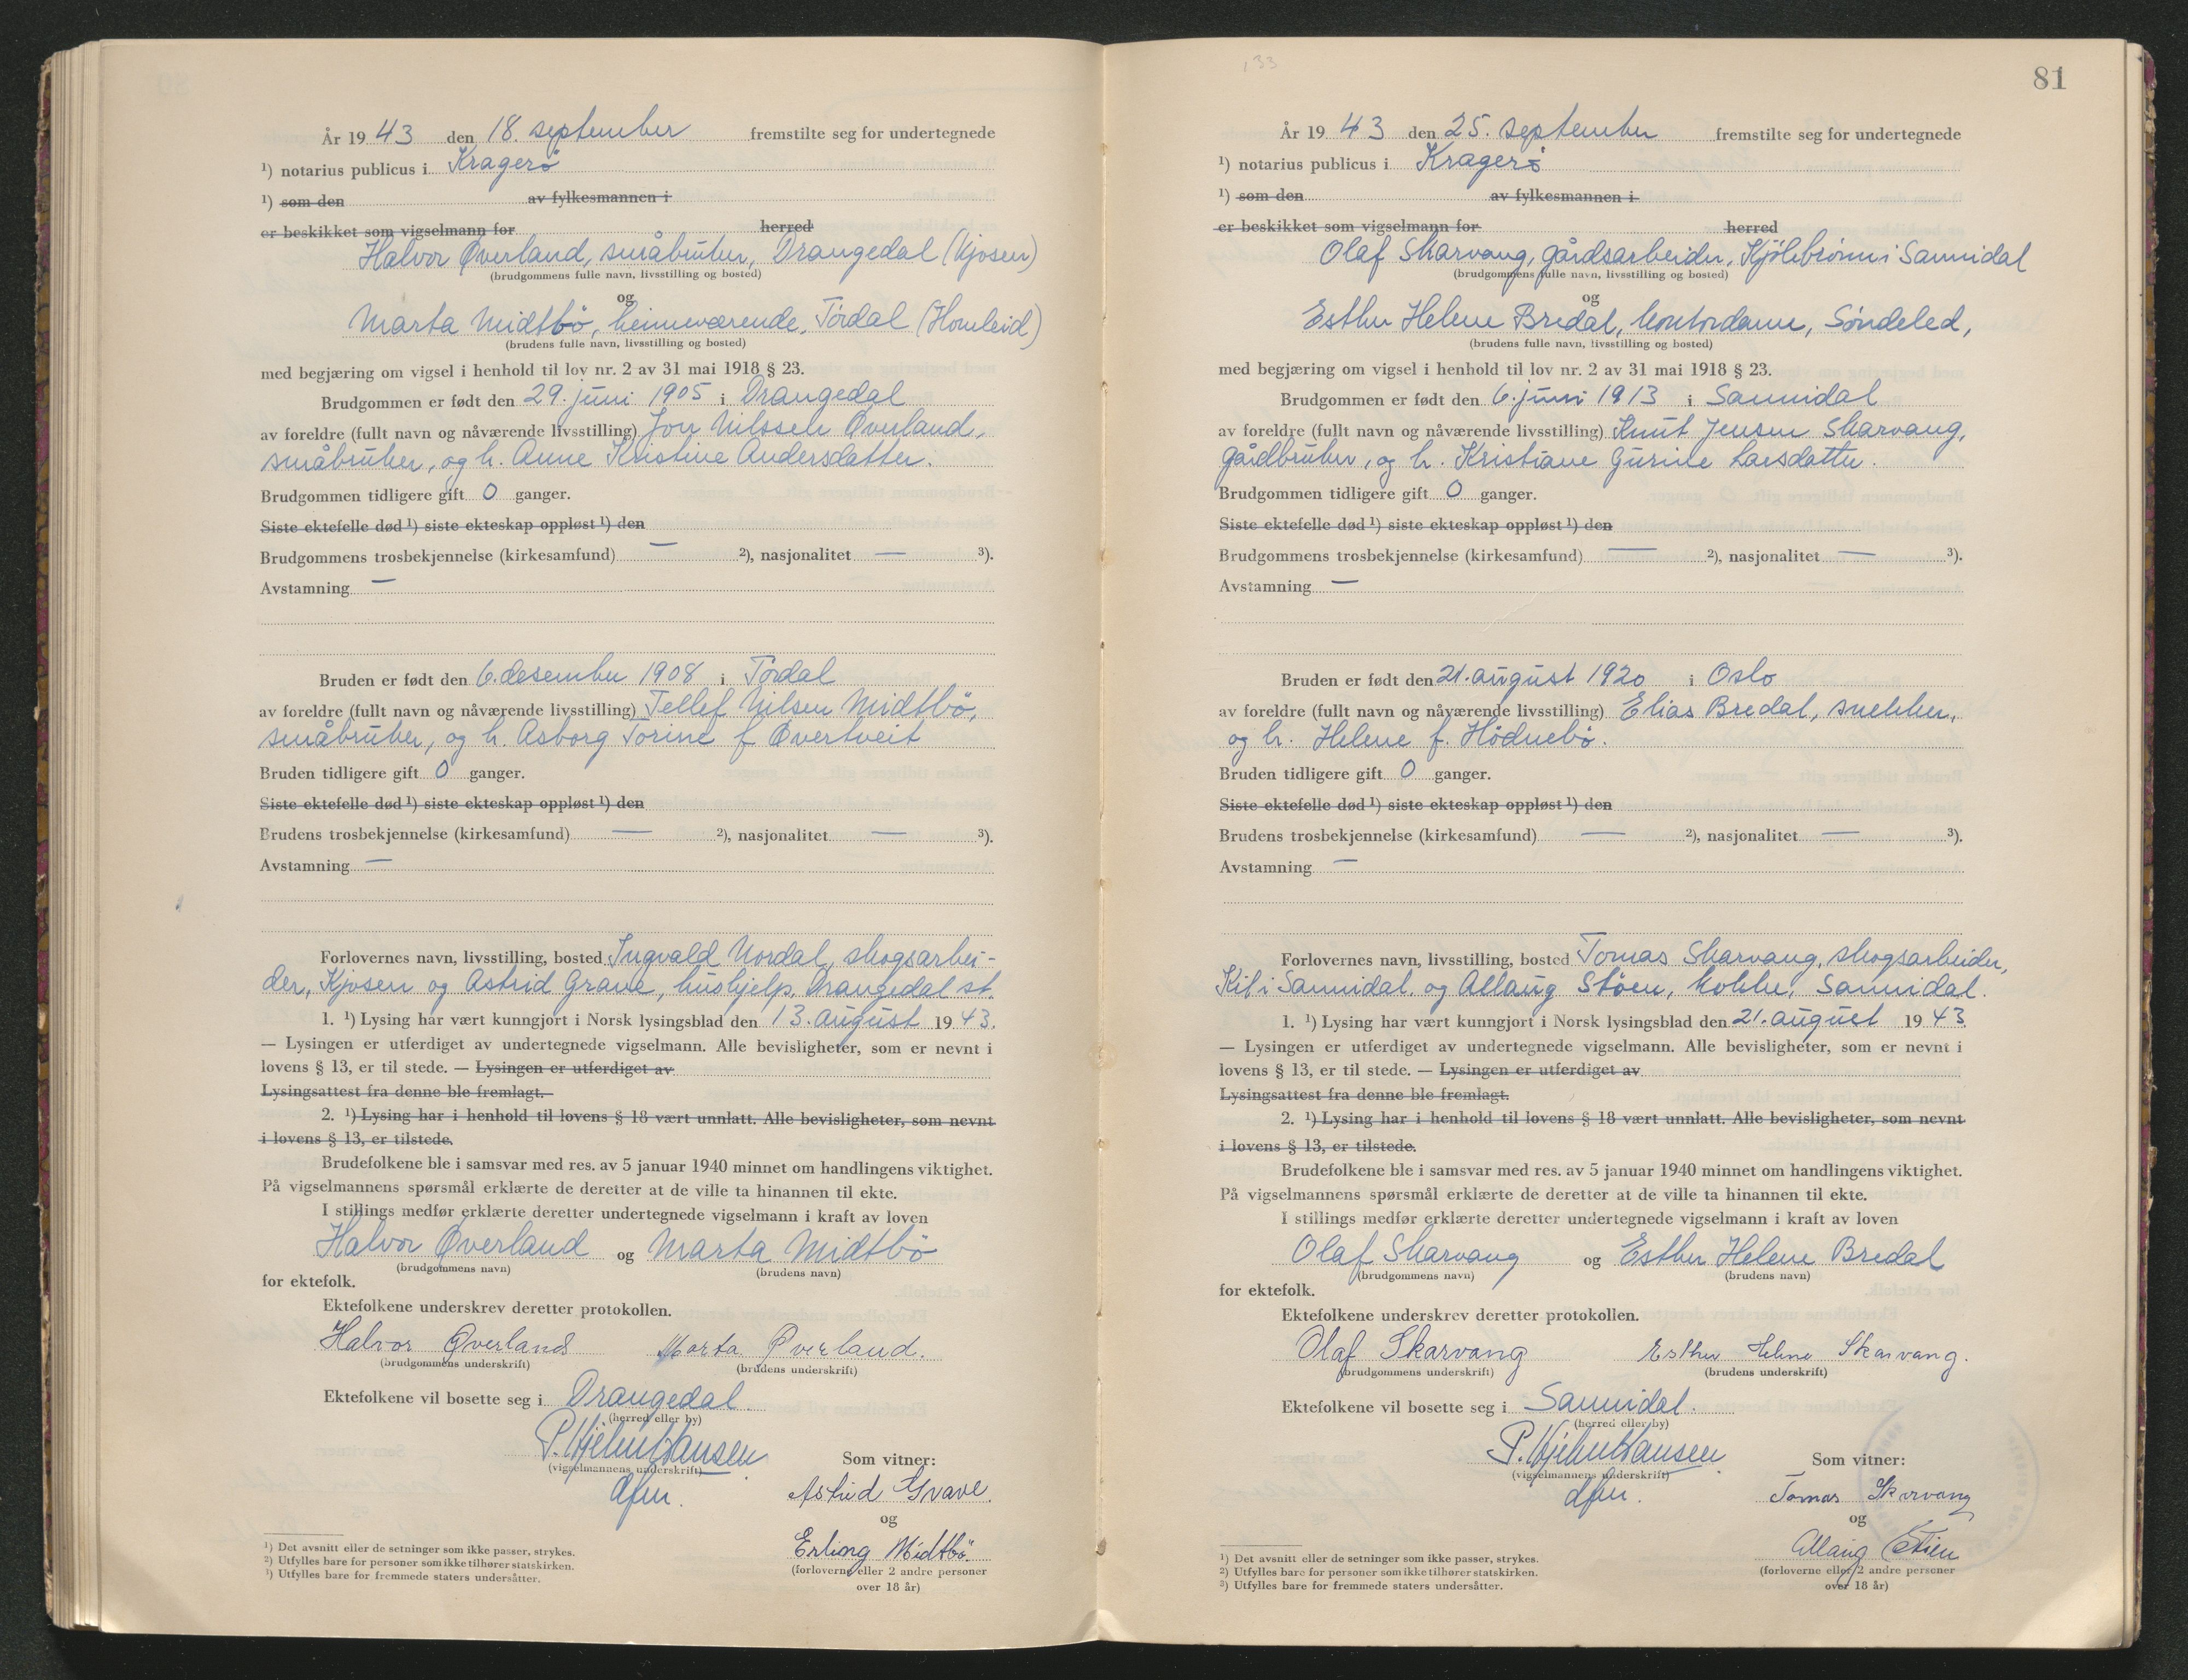 År 19 43 den 18. september fremstilte seg for undertegnede
¹) notarius publicus i Kragerø
¹) som den av fylkesmannen i
er beskikket som vigselmann for herred
Halvor Øverland, småbruker, Drangedal (Kjosen)
(brudgommens fulle navn, livsstilling og bosted)
og
Marta Midtbö, heimeværende, Tördal (Homleid)
(brudens fulle navn, livsstilling og bosted)
med begjæring om vigsel i henhold til lov nr. 2 av 31 mai 1918 § 23.
Brudgommen er født den 29. juni 1905 i Drangedal
av foreldre (fullt navn og nåværende livsstilling) Jon Nilssen Øverland,
småbruker, og h. Anne Kristine Andersdatter.
Brudgommen tidligere gift 0 ganger.
Siste ektefelle død ¹) siste ekteskap oppløst ¹) den
Brudgommens trosbekjennelse (kirkesamfund) — ²), nasjonalitet — ³).
Avstamning —
Bruden er født den 6. desember 1908 i Tördal
av foreldre (fullt navn og nåværende livsstilling) Tellef Nilsen Midtbö,
småbruker, og h. Asborg Torine f. Övertveit
Bruden tidligere gift 0 ganger.
Siste ektefelle død ¹) siste ekteskap oppløst ¹) den
Brudens trosbekjennelse (kirkesamfund) — ²), nasjonalitet — ³).
Avstamning —
Forlovernes navn, livsstilling, bosted Ingvald Nordal, skogsarbei-
der, Kjosen og Astrid Grave, hushjelp, Drangedal st.
1. ¹) Lysing har vært kunngjort i Norsk lysingsblad den 13. august 19 43.
— Lysingen er utferdiget av undertegnede vigselmann. Alle bevisligheter, som er nevnt i
lovens § 13, er til stede. — Lysingen er utferdiget av
Lysingsattest fra denne ble fremlagt.
2. ¹) Lysing har i henhold til lovens § 18 vært unnlatt. Alle bevisligheter, som nevnt
i lovens § 13, er tilstede.
Brudefolkene ble i samsvar med res. av 5 januar 1940 minnet om handlingens viktighet.
På vigselmannens spørsmål erklærte de deretter at de ville ta hinannen til ekte.
I stillings medfør erklærte deretter undertegnede vigselmann i kraft av loven
Halvor Øverland og Marta Midtbö
(brudgommens navn) (brudens navn)
for ektefolk.
Ektefolkene underskrev deretter protokollen.
Halvor Øverland Marta Øverland.
(brudgommens underskrift) (brudens underskrift)
Ektefolkene vil bosette seg i Drangedal.
(herred eller by)
P. Hjelm Hansen
(vigselmannens underskrift)
dfm.
Som vitner:
Astrid Grave.
og
Erling Midtbö.
(forloverne eller 2 andre personer
over 18 år)
¹) Det avsnitt eller de setninger som ikke passer, strykes.
²) Utfylles bare for personer som ikke tilhører statskirken.
³) Utfylles bare for fremmede staters undersåtter.
133
81
År 19 43 den 25. september fremstilte seg for undertegnede
¹) notarius publicus i Kragerø
¹) som den av fylkesmannen i
er beskikket som vigselmann for herred
Olaf Skarvang, gårdsarbeider, Kjölebrönn i Sannidal
(brudgommens fulle navn, livsstilling og bosted)
og
Esther Helene Bredal, kontordame, Söndeled,
(brudens fulle navn, livsstilling og bosted)
med begjæring om vigsel i henhold til lov nr. 2 av 31 mai 1918 § 23.
Brudgommen er født den 6. juni 1913 i Sannidal
av foreldre (fullt navn og nåværende livsstilling) Knut Jensen Skarvang,
gårdbruker, og h. Kristiane Gurine Larsdatter.
Brudgommen tidligere gift 0 ganger.
Siste ektefelle død ¹) siste ekteskap oppløst ¹) den
Brudgommens trosbekjennelse (kirkesamfund) — ²), nasjonalitet — ³).
Avstamning —
Bruden er født den 21. august 1920 i Oslo
av foreldre (fullt navn og nåværende livsstilling) Elias Bredal, snekker,
og h. Helene f. Hödnebö.
Bruden tidligere gift 0 ganger.
Siste ektefelle død ¹) siste ekteskap oppløst ¹) den
Brudens trosbekjennelse (kirkesamfund) — ²), nasjonalitet — ³).
Avstamning —
Forlovernes navn, livsstilling, bosted Tomas Skarvang, skogsarbeider,
Kil i Sannidal, og Allaug Stöen, kokke, Sannidal.
1. ¹) Lysing har vært kunngjort i Norsk lysingsblad den 21. august 19 43
— Lysingen er utferdiget av undertegnede vigselmann. Alle bevisligheter, som er nevnt i
lovens § 13, er til stede. — Lysingen er utferdiget av
Lysingsattest fra denne ble fremlagt.
2. ¹) Lysing har i henhold til lovens § 18 vært unnlatt. Alle bevisligheter, som nevnt
i lovens § 13, er tilstede.
Brudefolkene ble i samsvar med res. av 5 januar 1940 minnet om handlingens viktighet.
På vigselmannens spørsmål erklærte de deretter at de ville ta hinannen til ekte.
I stillings medfør erklærte deretter undertegnede vigselmann i kraft av loven
Olaf Skarvang og Esther Helene Bredal
(brudgommens navn) (brudens navn)
for ektefolk.
Ektefolkene underskrev deretter protokollen.
Olaf Skarvang Esther Helene Skarvang.
(brudgommens underskrift) (brudens underskrift)
Ektefolkene vil bosette seg i Sannidal.
(herred eller by)
P. Hjelm Hansen
(vigselmannens underskrift)
dfm.
Som vitner:
Tomas Skarvang
og
Allaug Stöen
(forloverne eller 2 andre personer
over 18 år)
¹) Det avsnitt eller de setninger som ikke passer, strykes.
²) Utfylles bare for personer som ikke tilhører statskirken.
³) Utfylles bare for fremmede staters undersåtter.